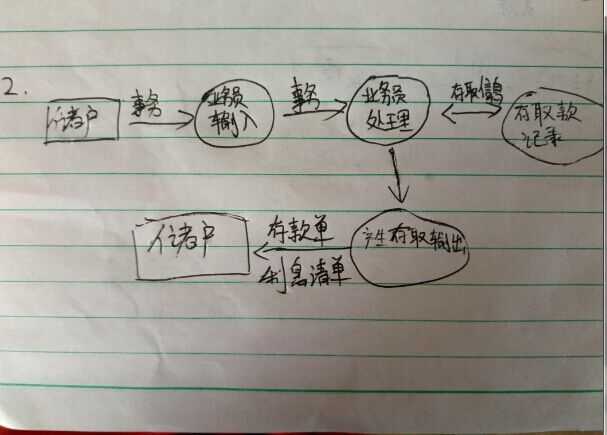 2.
储户
事务
业务员
输入
事务
业务员
处理
存取信息
存取款
记录
储户
存款单
利息清单
产生存取输出